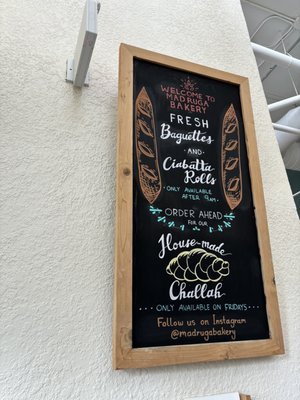 WELCOME TO
MADRUGA
BAKERY
FRESH
Baguettes
AND
Ciabatta
Rolls
ONLY AVAILABLE
AFTER 9AM
ORDER AHEAD
FOR OUR
House-made
Challah
ONLY AVAILABLE ON FRIDAYS
Follow us on Instagram
@madrugabakery